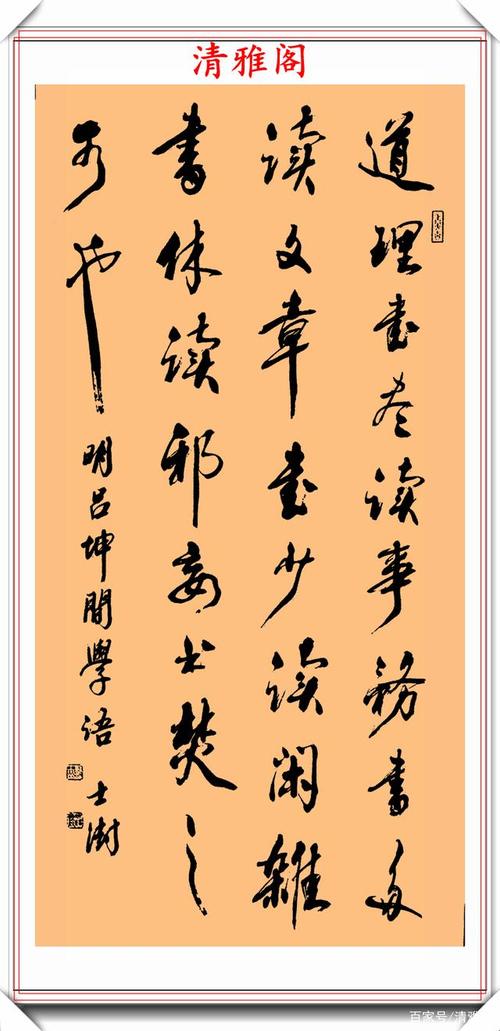 清雅阁
道理书尽读事務書多
读文章书少读闲雜
書休读邪妄书焚之
可也
明吕坤問學语
士澍
百家号/清雅